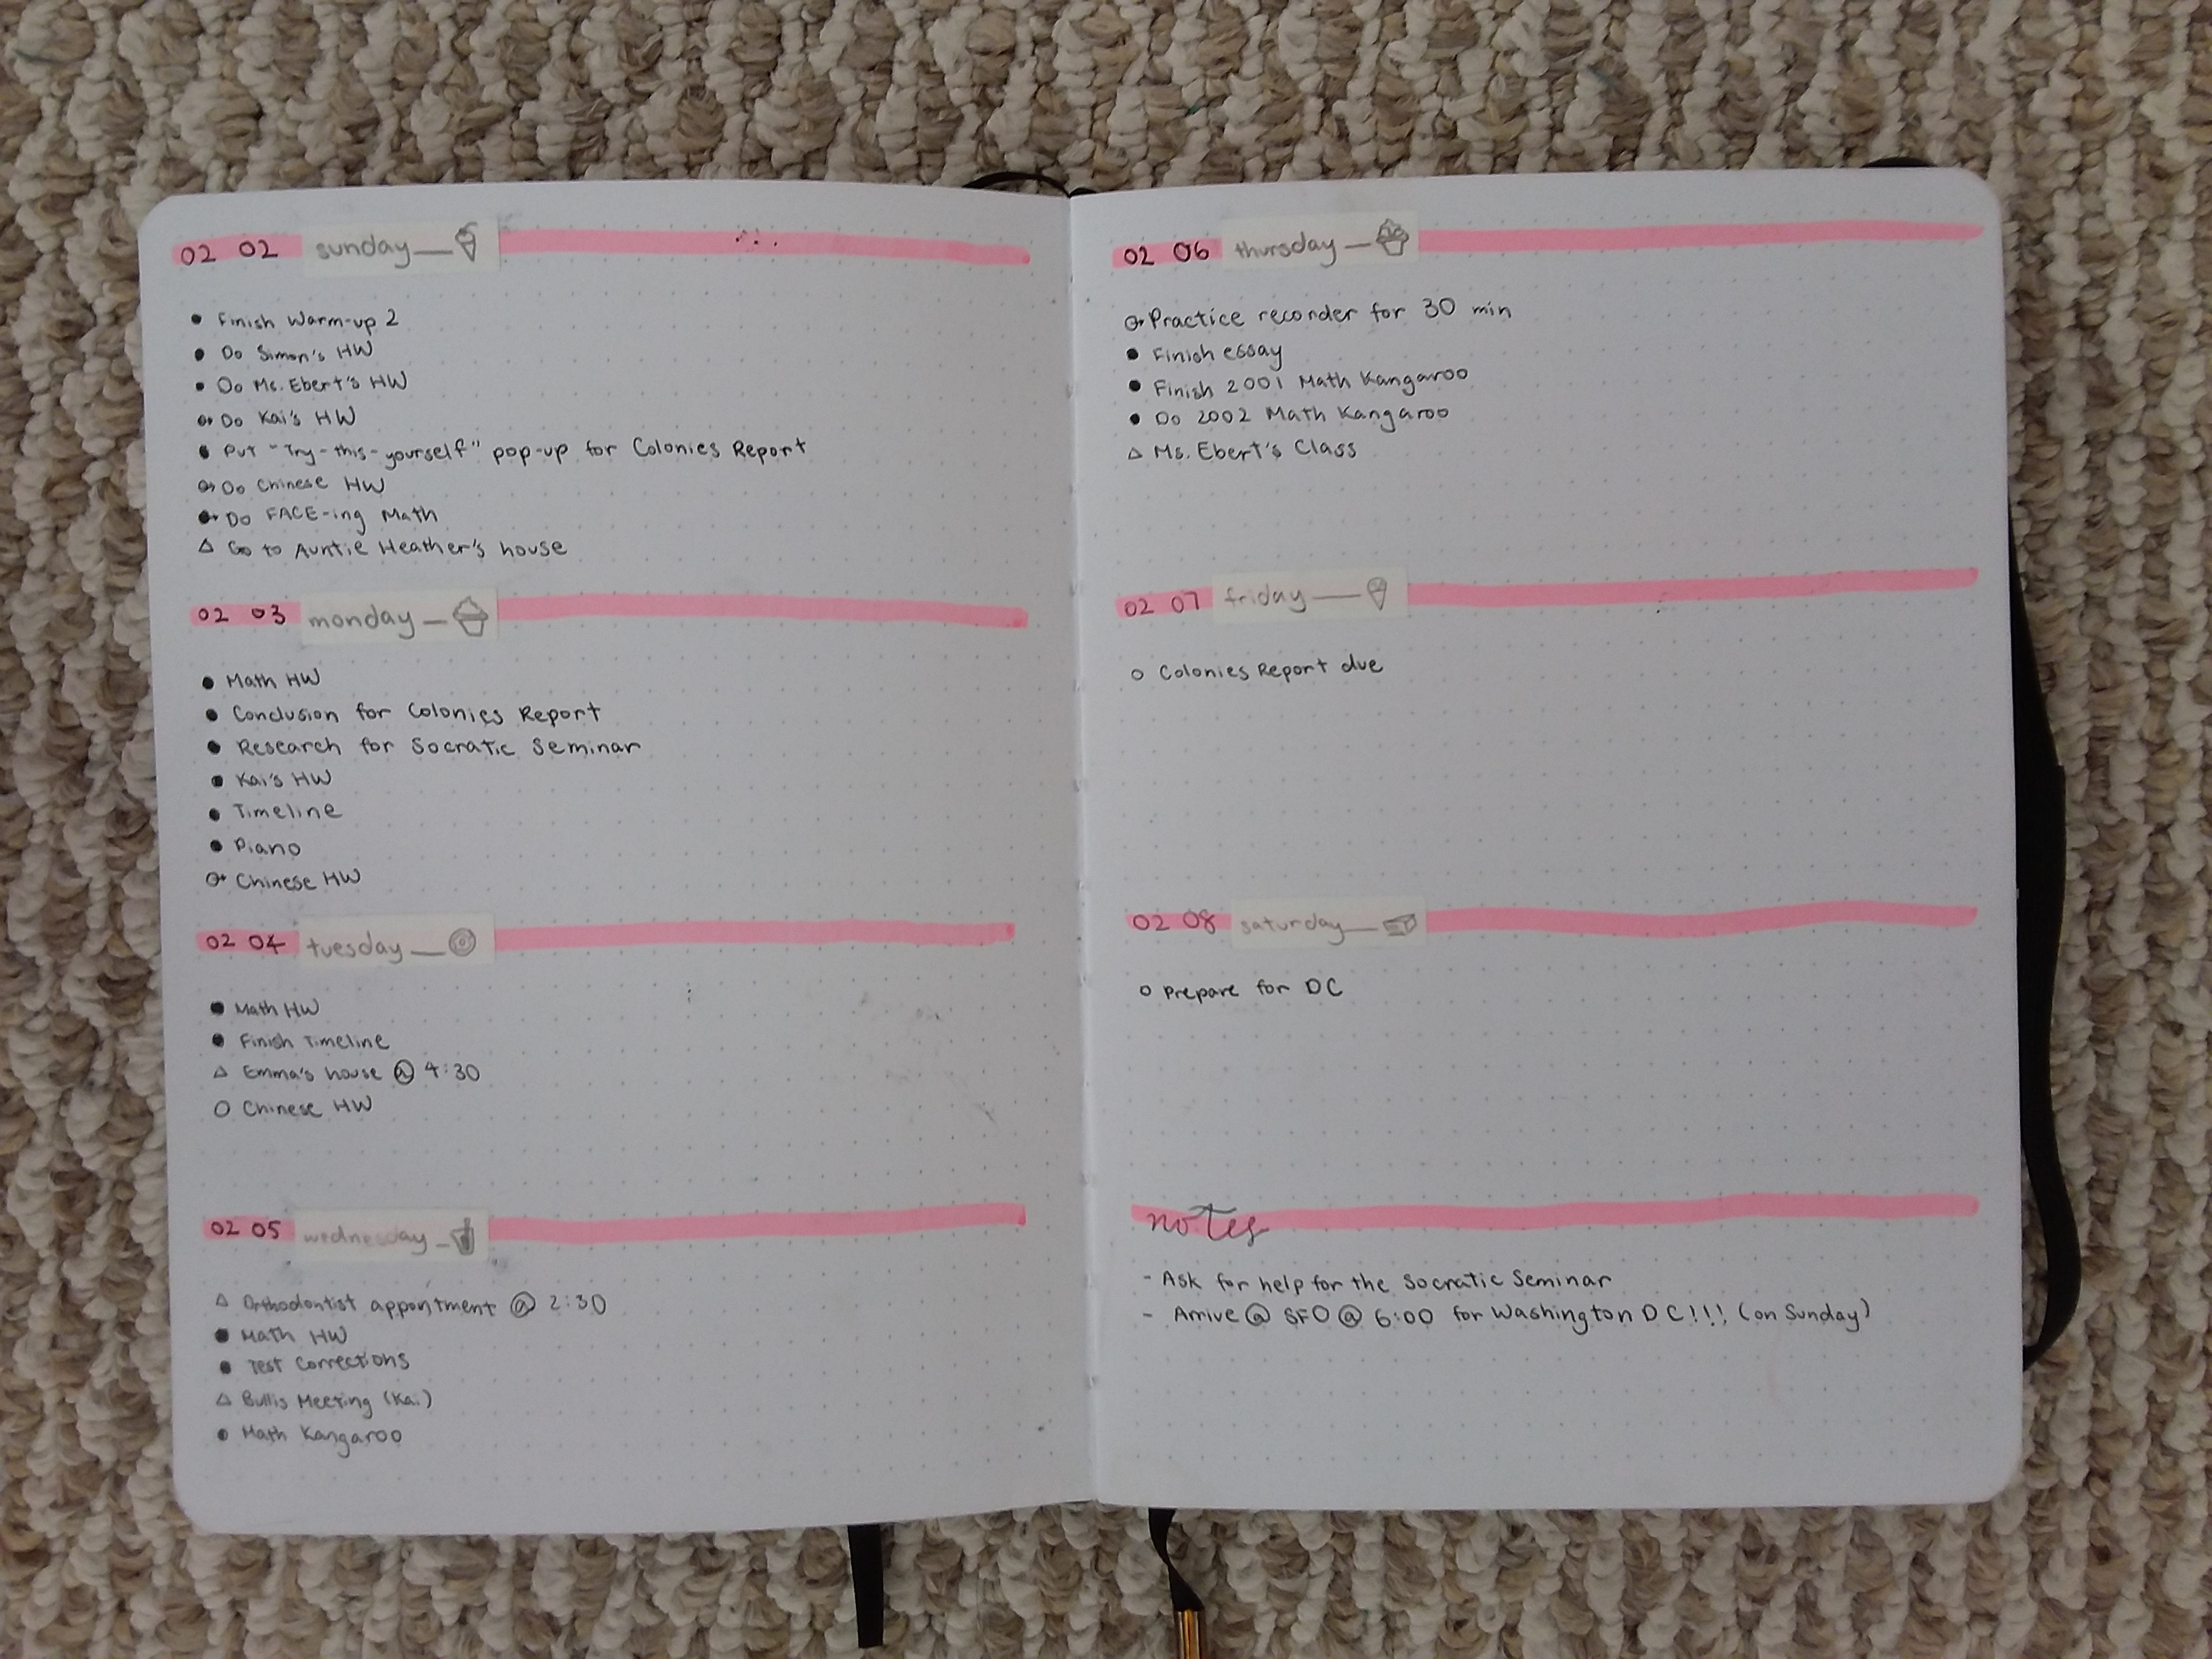 02 02 sunday
• Finish Warm-up 2
• Do Simon's HW
• Do Ms. Ebert's HW
o→ Do Kai's HW
• Put "Try-this-yourself" pop-up for Colonies Report
o→ Do Chinese HW
•→ Do FACE-ing Math
△ Go to Auntie Heather's house
02 03 monday
• Math HW
• Conclusion for Colonies Report
• Research for Socratic Seminar
• Kai's HW
• Timeline
• Piano
o→ Chinese HW
02 04 tuesday
• Math HW
• Finish Timeline
△ Emma's house @ 4:30
o Chinese HW
02 05 wednesday
△ Orthodontist appointment @ 2:30
• Math HW
• Test Corrections
△ Bullis Meeting (Kai)
• Math Kangaroo
02 06 thursday
o→ Practice recorder for 30 min
• Finish essay
• Finish 2001 Math Kangaroo
• Do 2002 Math Kangaroo
△ Ms. Ebert's Class
02 07 friday
o Colonies Report due
02 08 saturday
o Prepare for DC
notes
- Ask for help for the Socratic Seminar
- Arrive @ SFO @ 6:00 for Washington DC!!! (on Sunday)